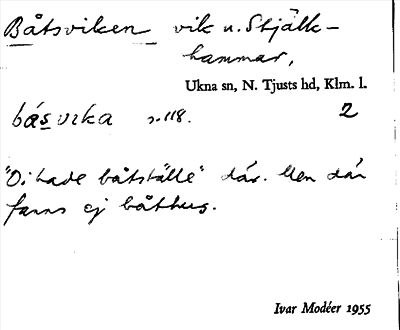 Båtsviken vik u. Stjälk-
hammar,
Ukna sn, N. Tjusts hd, Klm. l.
båsvika s. 118. 2
"Di hade båtställe" där. Men där
fanns ej båthus.
Ivar Modéer 1955